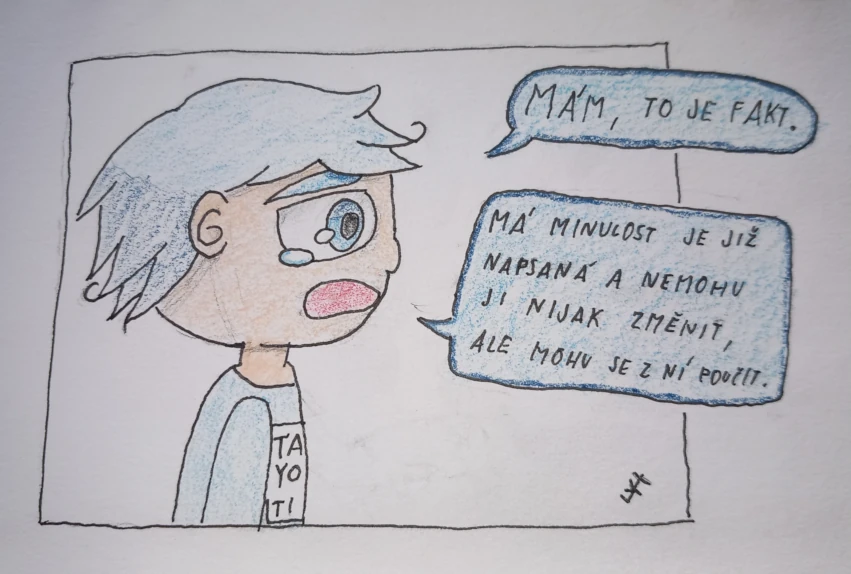 MÁM, TO JE FAKT.
MÁ MINULOST JE JIŽ
NAPSANÁ A NEMOHU
JI NIJAK ZMĚNIT,
ALE MOHU SE Z NÍ POUČIT.
TA
YO
TI